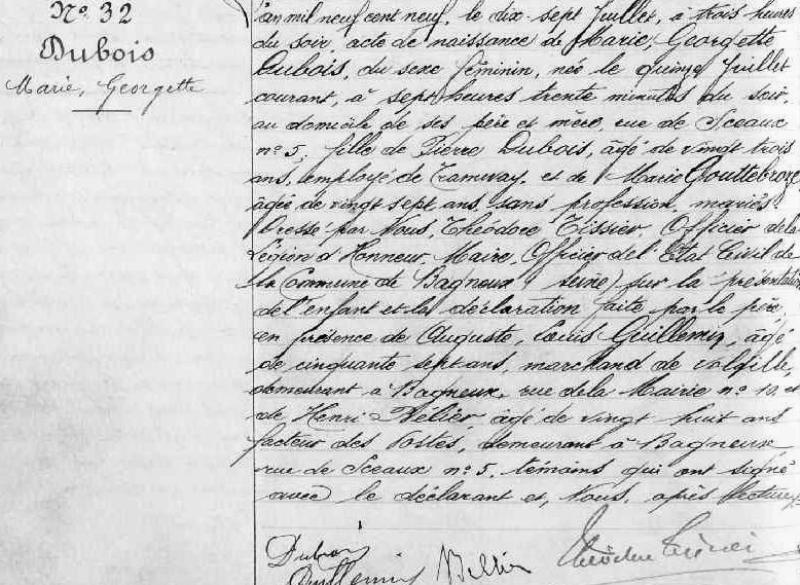 N° 32
Dubois
Marie, Georgette
L'an mil neuf cent neuf, le dix-sept Juillet, à trois heures
du soir, acte de naissance de Marie, Georgette
Dubois, du sexe féminin, née le quinze Juillet
courant, à sept heures trente minutes du soir,
au domicile de ses père et mère, rue de Sceaux
n° 5, fille de Pierre Dubois, âgé de vingt trois
ans, employé de Tramway, et de Marie Gouttebroze
âgée de vingt sept ans, sans profession, mariés
Dressé par Nous, Théodore Tissier, Officier de la
Légion d'Honneur, Maire, Officier de l'Etat Civil de
la Commune de Bagneux (Seine) sur la présentation
de l'enfant et la déclaration faite par le père
en présence de Auguste, Louis Guillemin, âgé
de cinquante sept ans, marchand de volaille,
demeurant à Bagneux, rue de la Mairie n° 10, et
de Henri Bélier, âgé de vingt huit ans
facteur des Postes, demeurant à Bagneux
rue de Sceaux n° 5, témoins qui ont signé
avec le déclarant et Nous, après lecture
Dubois
Guillemin Bélier Théodore Tissier